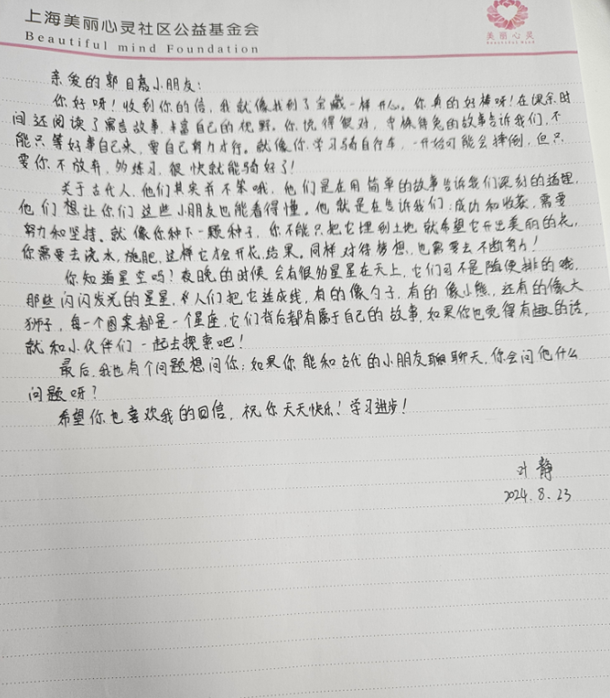 上海美丽心灵社区公益基金会
Beautiful mind Foundation
美丽心灵
亲爱的郭目嘉小朋友:
你好呀!收到你的信,我就像找到了宝藏一样开心。你真的好棒呀!在课余时
间还阅读了寓言故事,丰富自己的视野。你说得很对,守株待兔的故事告诉我们,不
能只等好事自己来,要自己努力才行。就像你学习骑自行车,一开始可能会摔倒,但只
要你不放弃,多练习,很快就能骑好了!
关于古代人,他们其实并不笨哦,他们是在用简单的故事告诉我们深刻的道理,
他们想让你们这些小朋友也能看得懂。他就是在告诉我们:成功和收获,需要
努力和坚持。就像你种下一颗种子,你不能只把它埋到土地,就希望它开出美丽的花,
你需要去浇水,施肥,这样它才会开花,结果。同样对待梦想,也需要去不断努力!
你知道星空吗?夜晚的时候,会有很多星星在天上,它们可不是随便排的哦,
那些闪闪发光的星星,人们把它连成线,有的像勺子,有的像小熊,还有的像大
狮子,每一个图案都是一个星座,它们背后都有属于自己的故事,如果你也觉得有趣的话,
就和小伙伴们一起去探索吧!
最后,我也有个问题想问你:如果你能和古代的小朋友聊聊天,你会问他什么
问题呀?
希望你也喜欢我的回信,祝你天天快乐!学习进步!
叶静
2024.8.23